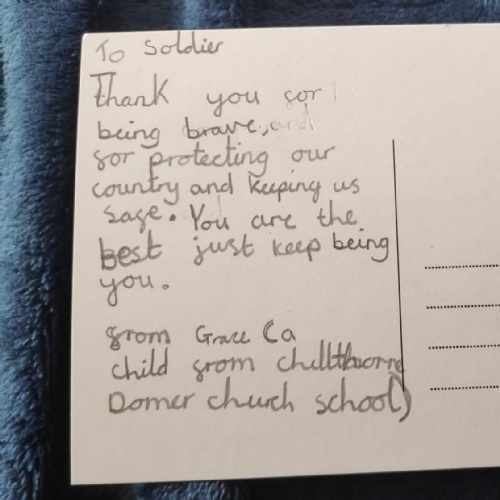 To Soldier
Thank you for
being brave, and
for protecting our
country and keeping us
safe. You are the
best just keep being
you.
from Grace (a
child from chillthorne
Domer church school)